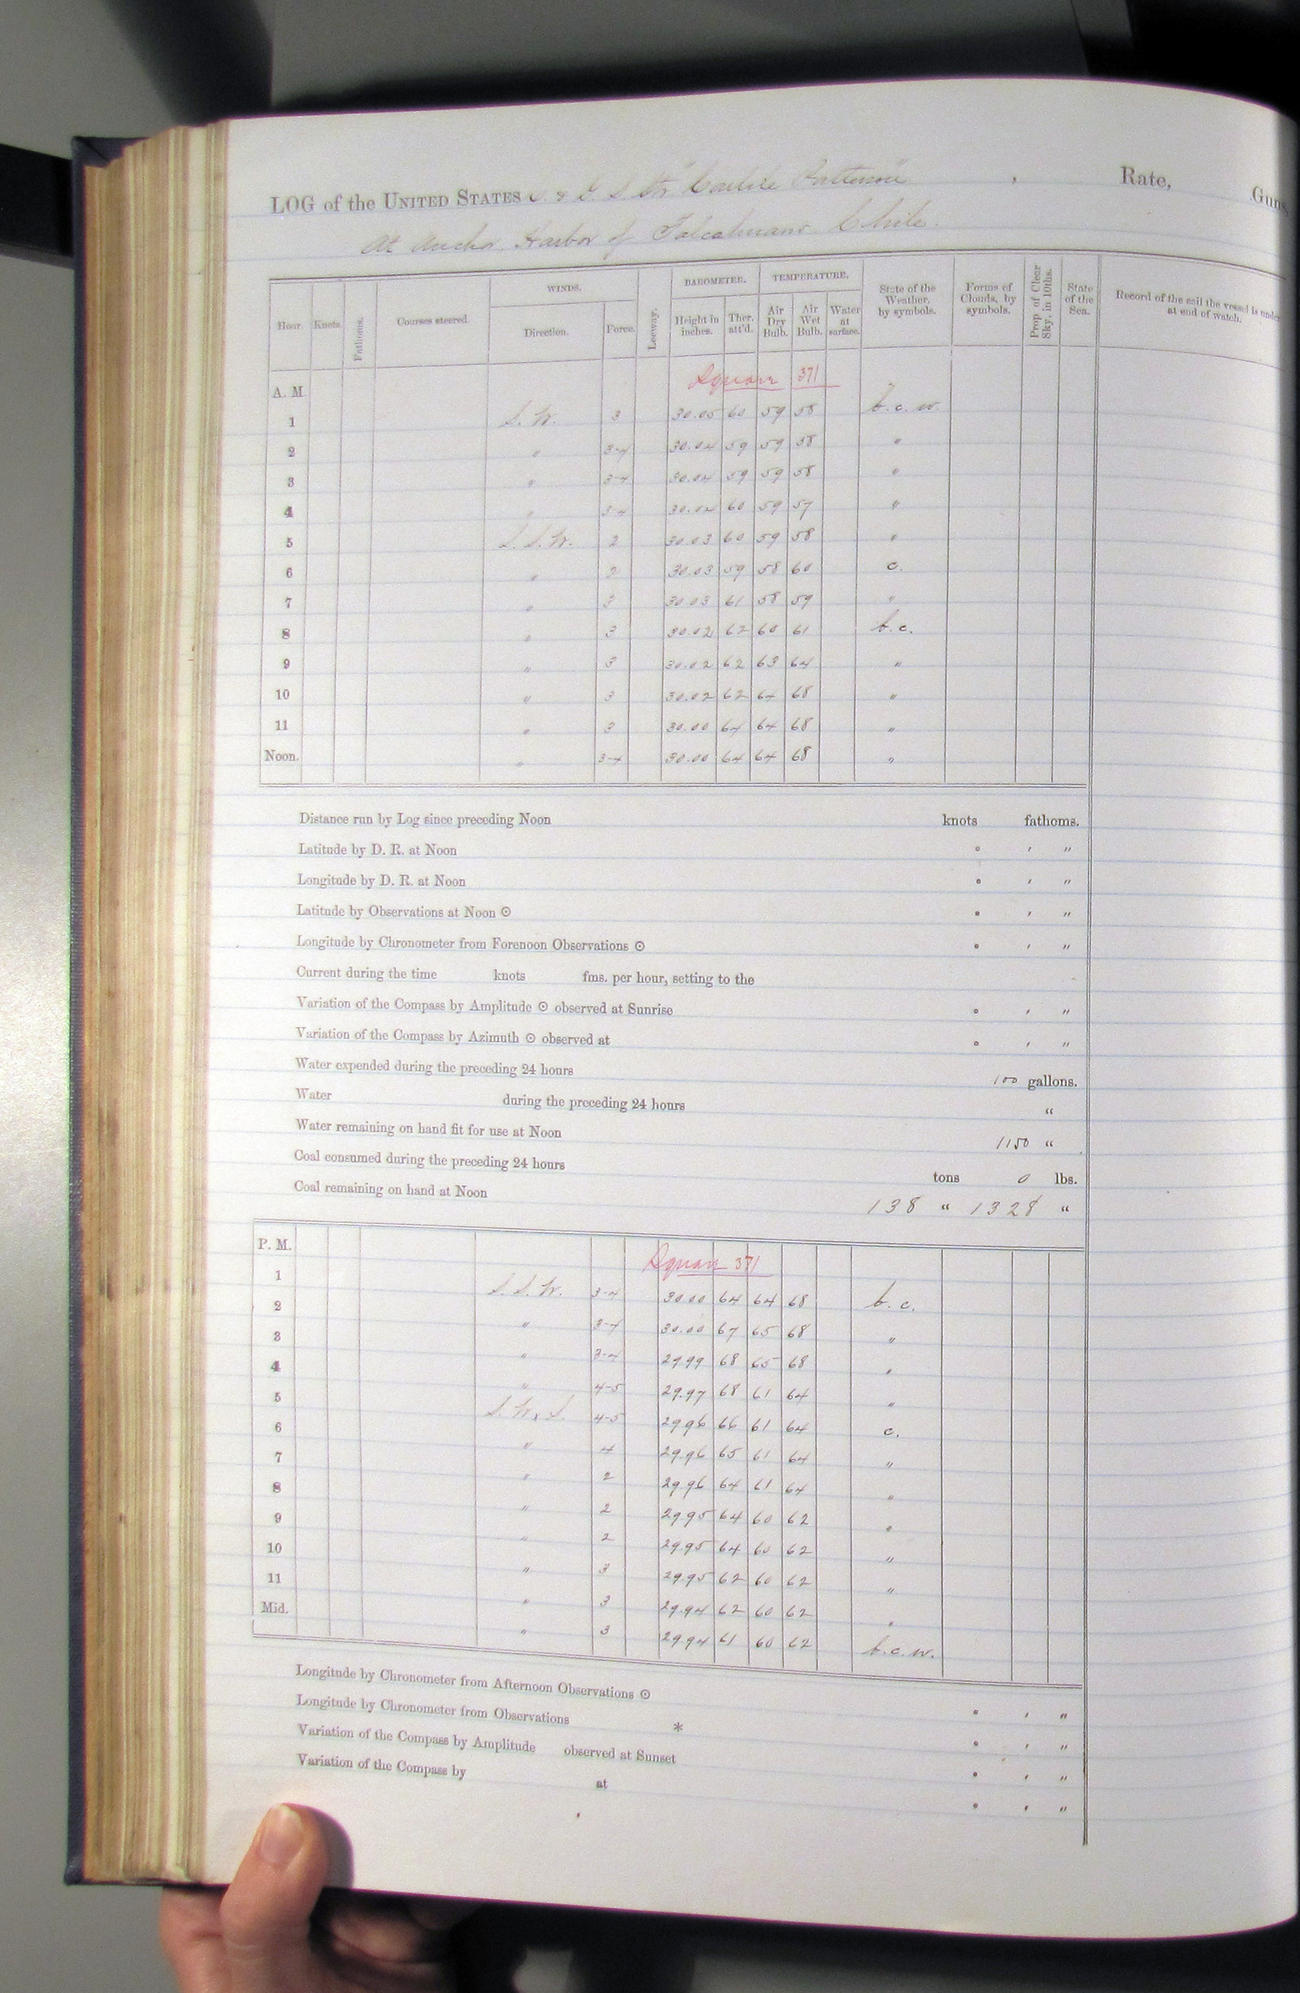 LOG of the UNITED STATES C. & G. S. Str "Carlile Patterson" , Rate, Guns
At Anchor Harbor of Talcahuano Chile.
WINDS. BAROMETER. TEMPERATURE.
Hour. Knots. Fathoms. Courses steered. Direction. Force. Leeway. Height in inches. Ther. att'd. Air Dry Bulb. Air Wet Bulb. Water at surface. State of the Weather, by symbols. Forms of Clouds, by symbols. Prop. of Clear Sky, in 10ths. State of the Sea. Record of the sail the vessel is under at end of watch.
A. M. Square 371
1 S. W. 3 30.05 60 59 58 b. c. w.
2 " 3-4 30.04 59 59 58 "
3 " 3-4 30.04 59 59 58 "
4 " 3-4 30.04 60 59 57 "
5 S. S. W. 2 30.03 60 59 58 "
6 " 2 30.03 59 58 60 c.
7 " 3 30.03 61 58 59 "
8 " 3 30.02 62 60 61 b. c.
9 " 3 30.02 62 63 64 "
10 " 3 30.02 62 64 68 "
11 " 3 30.00 64 64 68 "
Noon. " 3-4 30.00 64 64 68 "
Distance run by Log since preceding Noon knots fathoms.
Latitude by D. R. at Noon ° ′ ″
Longitude by D. R. at Noon ° ′ ″
Latitude by Observations at Noon ⊙ ° ′ ″
Longitude by Chronometer from Forenoon Observations ⊙ ° ′ ″
Current during the time knots fms. per hour, setting to the
Variation of the Compass by Amplitude ⊙ observed at Sunrise ° ′ ″
Variation of the Compass by Azimuth ⊙ observed at ° ′ ″
Water expended during the preceding 24 hours 100 gallons.
Water during the preceding 24 hours "
Water remaining on hand fit for use at Noon 1150 "
Coal consumed during the preceding 24 hours tons 0 lbs.
Coal remaining on hand at Noon 138 " 1328 "
P. M. Square 371
1 S. S. W. 3-4 30.00 64 64 68 b. c.
2 " 3-4 30.00 67 65 68 "
3 " 3-4 29.99 68 65 68 "
4 " 4-5 29.97 68 61 64 "
5 S. W. x S. 4-5 29.96 66 61 64 c.
6 " 4 29.96 65 61 64 "
7 " 2 29.96 64 61 64 "
8 " 2 29.95 64 60 62 "
9 " 2 29.95 64 60 62 "
10 " 3 29.95 62 60 62 "
11 " 3 29.94 62 60 62 "
Mid. " 3 29.94 61 60 62 b. c. w.
Longitude by Chronometer from Afternoon Observations ⊙ ° ′ ″
Longitude by Chronometer from Observations * ° ′ ″
Variation of the Compass by Amplitude observed at Sunset ° ′ ″
Variation of the Compass by at ° ′ ″